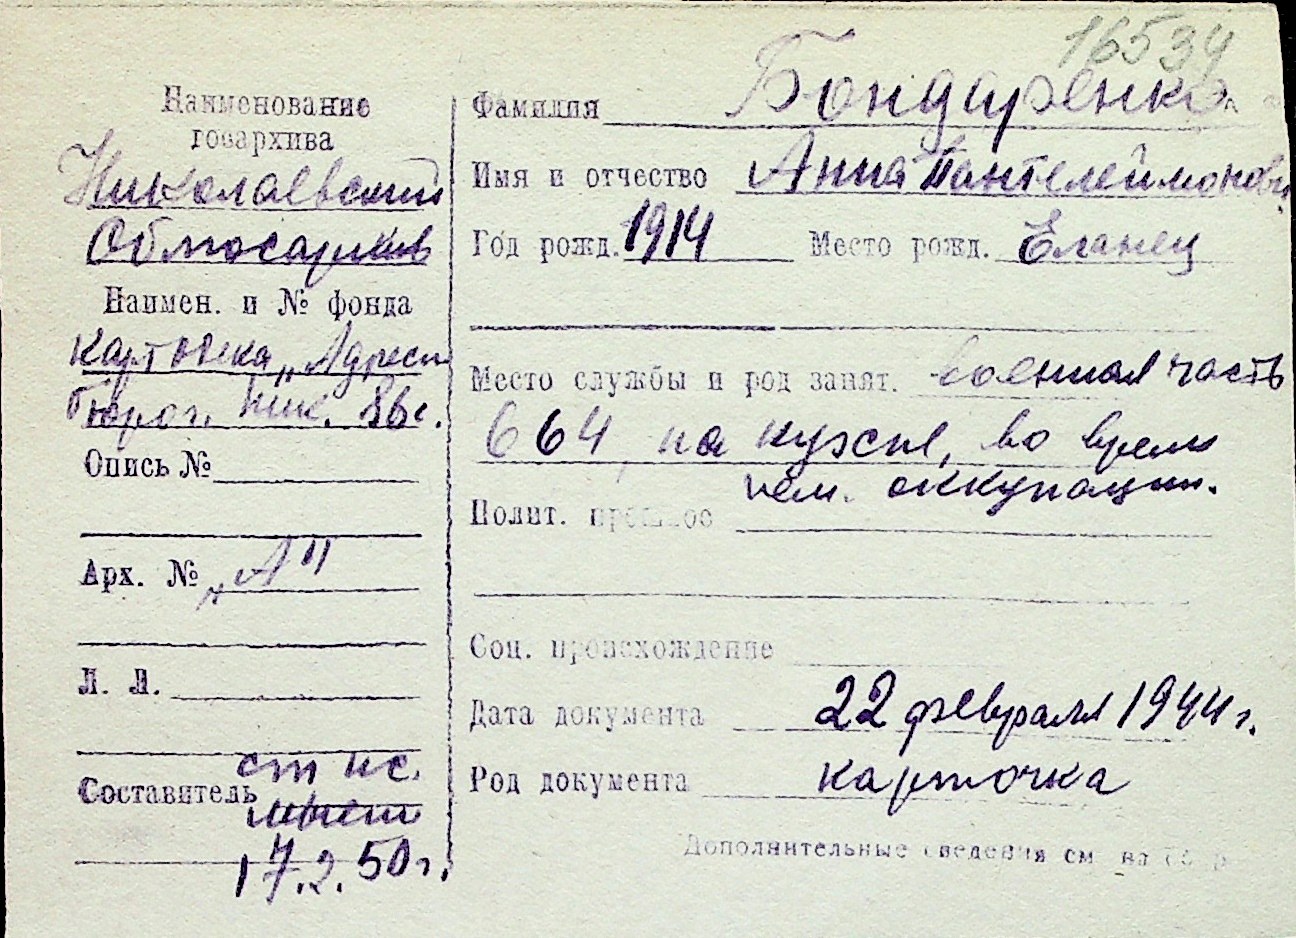 16534
Наименование
госархива
Николаевский
Облгосархив
Наимен. и № фонда
картотека „Адресн
бюро г. Ник.
Опись №
Арх. № „А"
Л. Л.
Составитель ст нс.
17.2.50г.
Фамилия Бондаренко
Имя и отчество Анна Пантелеймоновн
Год рожд. 1914 Место рожд. Еланец
Место службы и род занят. военная часть
664, на кухне, во время
нем. оккупации.
Полит. прошлое
Соц. происхождение
Дата документа 22 февраля 1944 г.
Род документа карточка
Дополнительные сведения см на об р